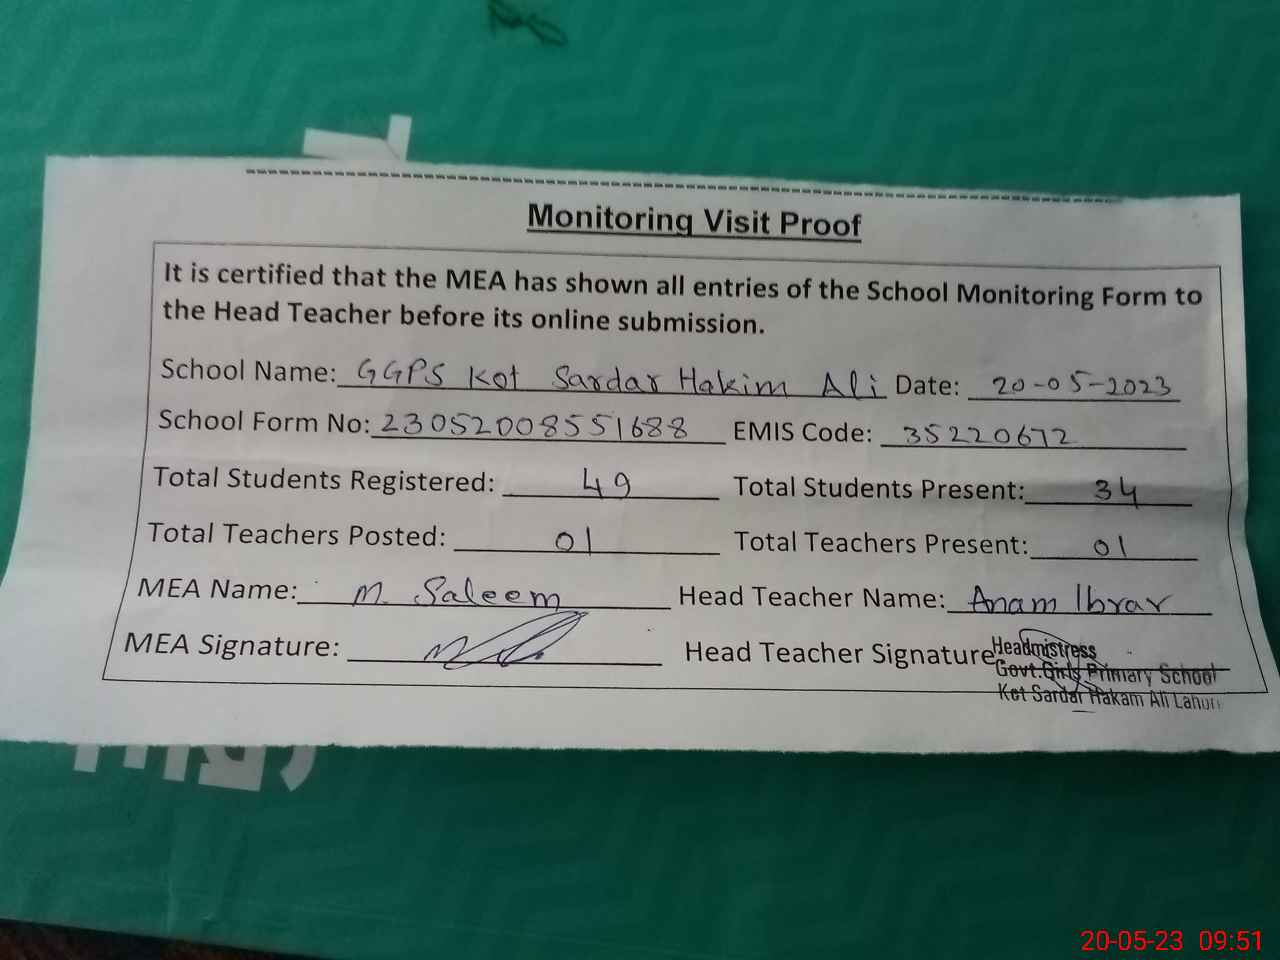 Monitoring Visit Proof
It is certified that the MEA has shown all entries of the School Monitoring Form to
the Head Teacher before its online submission.
School Name: GGPS Kot Sardar Hakim Ali Date: 20-05-2023
School Form No: 23052008551688 EMIS Code: 35220672
Total Students Registered: 49 Total Students Present: 34
Total Teachers Posted: 01 Total Teachers Present: 01
MEA Name: M. Saleem Head Teacher Name: Anam Ibrar
MEA Signature: Head Teacher Signature
Headmistress
Govt.Girls Primary School
Kot Sardar Hakam Ali Lahore
20-05-23 09:51